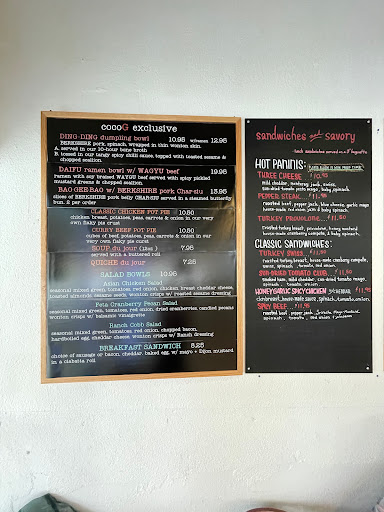 cocoG exclusive
DING-DING dumpling bowl 10.95 w/ramen 12.95
BERKSHIRE pork, spinach, wrapped in thin wonton skin.
A. served in our 10-hour bone broth
B. tossed in our tangy spicy chilli sauce, topped with toasted sesame &
chopped scallion.
DAIFU ramen bowl w/ WAGYU beef 19.95
ramen with soy braised WAGYU beef served with spicy pickled
mustard greens & chopped scallion.
BAO GEE BAO w/ BERKSHIRE pork Char-siu 13.95
skinless BERKSHIRE pork belly CHAR-SIU served in a steamed butterfly
bun. 2 per order
CLASSIC CHICKEN POT PIE 10.50
chicken breast, potatoes, peas, carrots & onion in our very
own flaky pie crust
CURRY BEEF POT PIE 10.50
cubes of beef, potatoes, peas, carrots & onion in our
very own flaky pie crust
SOUP du jour (16oz) 7.25
served with a buttered roll
QUICHE du jour 7.25
SALAD BOWLS 10.95
Asian Chicken Salad
seasonal mixed green, tomatoes, red onion, chicken breast, cheddar cheese,
toasted almonds, sesame seeds, wonton crisps w/ roasted sesame dressing
Feta Cranberry Pecan Salad
seasonal mixed green, feta, tomatoes, red onion, dried cranberries, candied pecans
wonton crisps w/ balsamic vinaigrette
Ranch Cobb Salad
seasonal mixed green, tomatoes, red onion, chopped bacon,
hardboiled egg, cheddar cheese, wonton crisps w/ Ranch dressing
BREAKFAST SANDWICH 8.25
choice of sausage or bacon, cheddar, baked egg, w/ mayo + Dijon mustard
in a ciabatta roll
sandwiches and savory
each sandwiches served on a
HOT PANINIS:
THREE CHEESE $10.95
mild cheddar, monterey jack, swiss,
sun-dried tomato pesto mayo, baby spinach.
PEPPER STEAK... $11.95
roasted beef, pepper jack, blue cheese, garlic mayo
house-made red onion jam & baby spinach.
TURKEY PROVOLONE... $11.50
roasted turkey breast, provolone, honey mustard
house-made cranberry compote, & baby spinach.
CLASSIC SANDWICHES:
TURKEY SWISS... $11.95
roasted turkey breast, house-made cranberry compote,
swiss, spinach, tomato, and onion.
SUN-DRIED TOMATO CLUB... $11.95
smoked ham, mild cheddar, sun-dried tomato mayo,
spinach, tomato, onion.
HONEY GARLIC SPICY CHICKEN w/ CHEDDAR $11.95
spinach, tomato, onion
SPICY BEEF... $11.95
roasted beef, pepper jack,
spinach, tomato, and onion